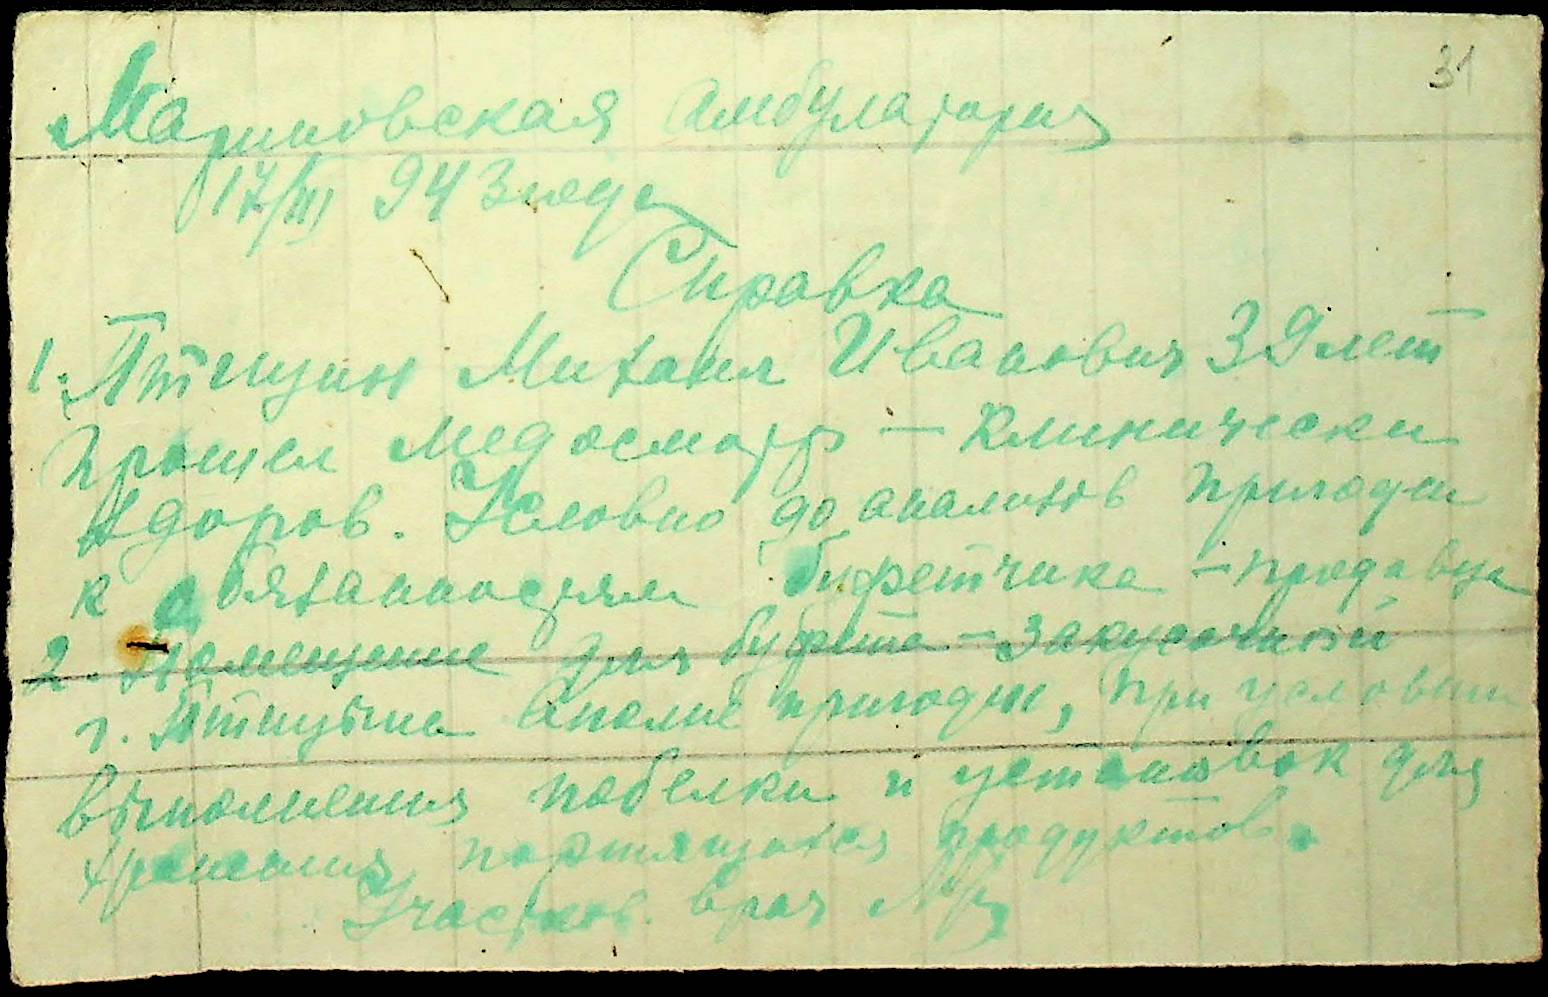 31
Мариновская Амбулатория
17/III 943 года
Справка
1. Птицын Михаил Иванович 39 лет
прошел медосмотр – клинически
здоров. Условно до анализов пригоден
к обязанностям буфетчика – продавца
2. Помещение для буфета – закусочной
г. Птицына вполне пригодно, при условии
выполнения побелки и установок для
хранения портящихся продуктов.
Участков. врач